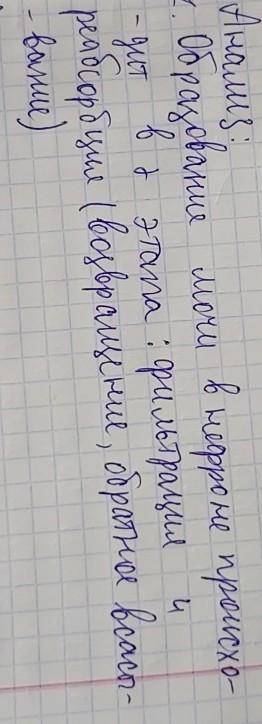 Анализ:
1. Образование мочи в нефроне происхо-
-дит в 2 этапа: фильтрация и
реабсорбция (возвращение, обратное всасы-
-вание)